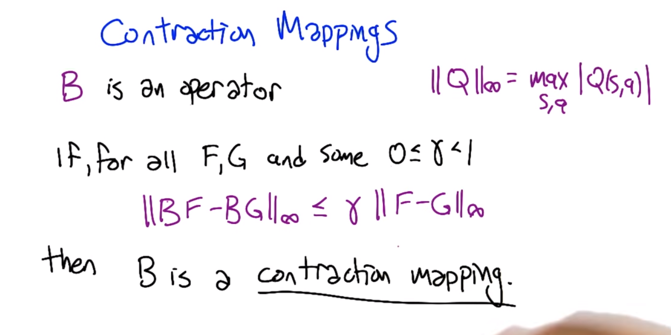 Contraction Mappings
B is an operator
||Q||∞ = max |Q(s,a)|
s,a
If, for all F,G and some 0 ≤ γ < 1
||BF-BG||∞ ≤ γ ||F-G||∞
then B is a contraction mapping.